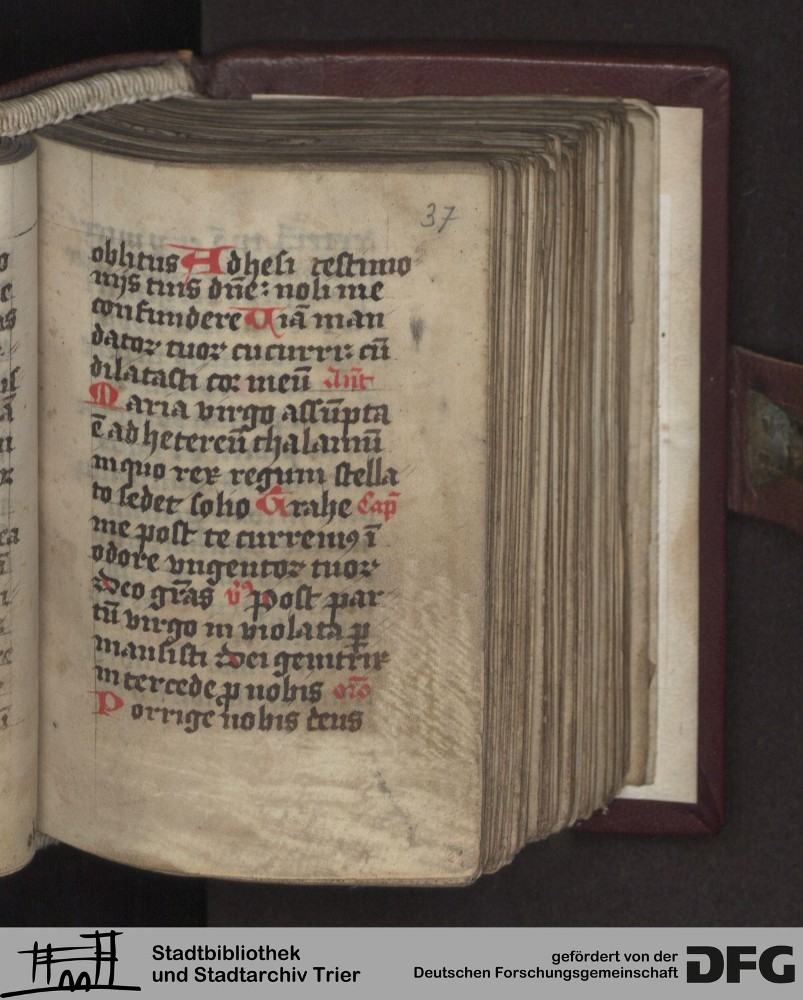 37
oblitus Adhesi testimo
niis tuis dñe: noli me
confundere Uiā man
datoꝝ tuoꝝ cucurri: cū
dilatasti coꝛ meū Añt
Maria virgo assūpta
ē ad hetereū thalamū
in quo rex regum stella
to sedet solio Trahe Cap̄
me post te curremꝰ ī
odore vngentoꝝ tuoꝝ
Deo gr̄as v̄ Post par
tū virgo in violata ꝑ
mansisti Dei genitrix
in tercede ꝓ nobis or̄o
Porrige nobis deus
Stadtbibliothek
und Stadtarchiv Trier
gefördert von der
Deutschen Forschungsgemeinschaft
DFG